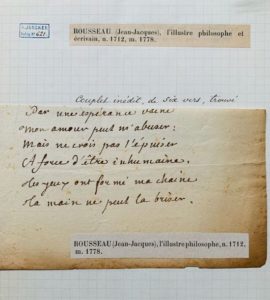 ROUSSEAU (Jean-Jacques), l'illustre philosophe et
écrivain, n. 1712, m. 1778.
Couplet inédit, de six vers, trouvé
Par une espérance vaine
mon amour peut m'abuser:
Mais ne crois pas l'épuiser
A force d'être inhumaine.
tes yeux ont formé ma chaîne
ta main ne peut la briser.
ROUSSEAU (Jean-Jacques), l'illustre philosophe, n. 1712,
m. 1778.